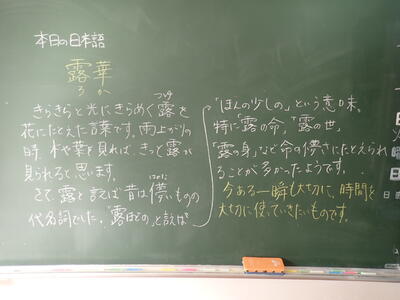 本日の日本語
露華
ろか
きらきらと光にきらめく露を
つゆ
花にたとえた言葉です。雨上がりの
時、木や葉を見れば、きっと露が
見られると思います。
さて、露と言えば昔は儚いものの
はかな
代名詞でした。「露ほどの」と言えば
「ほんの少しの」という意味。
特に「露の命」、「露の世」、
「露の身」など命の儚さにたとえられ
ることが多かったようです。
今ある一瞬も大切に、時間を
大切に使っていきたいものです。